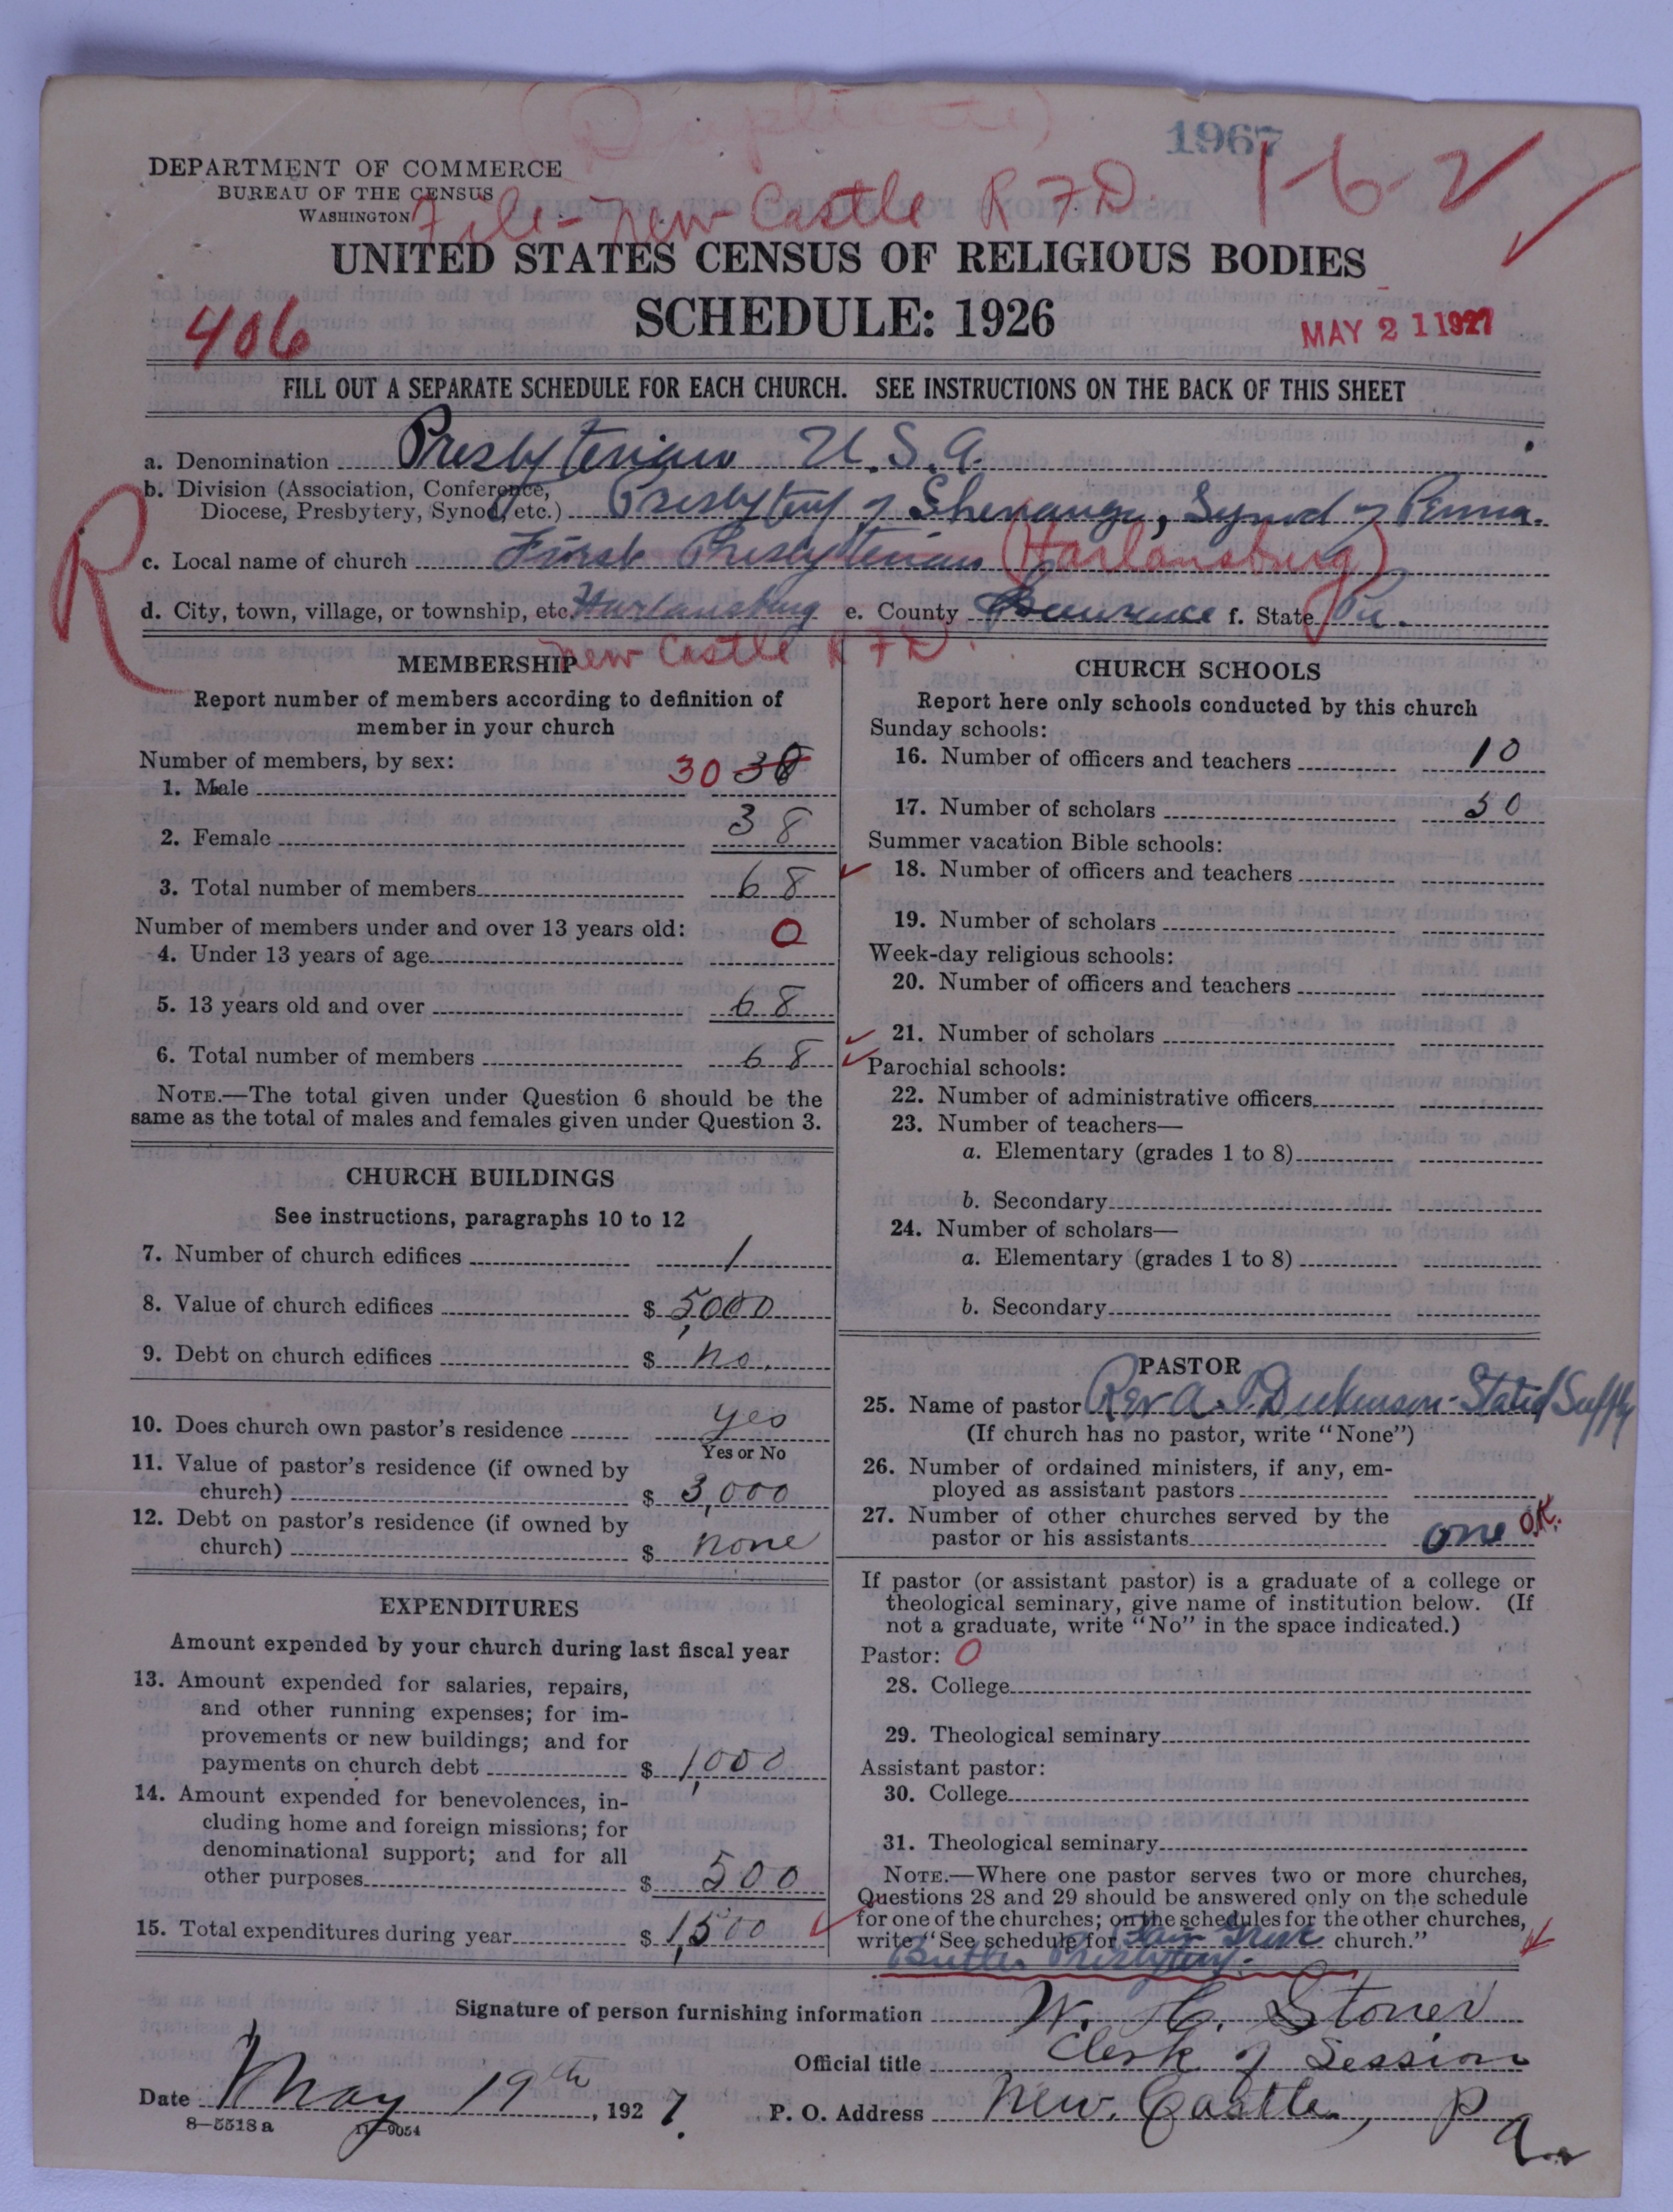 (Duplicate)
1967
1-6-2
DEPARTMENT OF COMMERCE
BUREAU OF THE CENSUS
WASHINGTON
File - New Castle R F D.
UNITED STATES CENSUS OF RELIGIOUS BODIES
SCHEDULE: 1926
406
MAY 21 1927
FILL OUT A SEPARATE SCHEDULE FOR EACH CHURCH. SEE INSTRUCTIONS ON THE BACK OF THIS SHEET
a. Denomination Presbyterian U.S.A.
b. Division (Association, Conference,
Diocese, Presbytery, Synod, etc.) Presbytery of Shenango, Synod of Penna.
R
c. Local name of church First Presbyterian (Harlansburg)
d. City, town, village, or township, etc. Harlansburg e. County Lawrence f. State Pa.
New Castle R F D.
MEMBERSHIP
Report number of members according to definition of
member in your church
Number of members, by sex:
1. Male 30 38
2. Female 38
3. Total number of members 68
Number of members under and over 13 years old:
4. Under 13 years of age 0
5. 13 years old and over 68
6. Total number of members 68
NOTE.—The total given under Question 6 should be the
same as the total of males and females given under Question 3.
CHURCH BUILDINGS
See instructions, paragraphs 10 to 12
7. Number of church edifices 1
8. Value of church edifices $ 5,000
9. Debt on church edifices $ no.
10. Does church own pastor's residence yes
Yes or No
11. Value of pastor's residence (if owned by
church) $ 3,000
12. Debt on pastor's residence (if owned by
church) $ none
EXPENDITURES
Amount expended by your church during last fiscal year
13. Amount expended for salaries, repairs,
and other running expenses; for im-
provements or new buildings; and for
payments on church debt $ 1,000
14. Amount expended for benevolences, in-
cluding home and foreign missions; for
denominational support; and for all
other purposes $ 500
15. Total expenditures during year $ 1,500
CHURCH SCHOOLS
Report here only schools conducted by this church
Sunday schools:
16. Number of officers and teachers 10
17. Number of scholars 50
Summer vacation Bible schools:
18. Number of officers and teachers
19. Number of scholars
Week-day religious schools:
20. Number of officers and teachers
21. Number of scholars
Parochial schools:
22. Number of administrative officers
23. Number of teachers—
a. Elementary (grades 1 to 8)
b. Secondary
24. Number of scholars—
a. Elementary (grades 1 to 8)
b. Secondary
PASTOR
25. Name of pastor Rev A. Dickinson - Stated Supply
(If church has no pastor, write "None")
26. Number of ordained ministers, if any, em-
ployed as assistant pastors
27. Number of other churches served by the
pastor or his assistants one O.K.
If pastor (or assistant pastor) is a graduate of a college or
theological seminary, give name of institution below. (If
not a graduate, write "No" in the space indicated.)
Pastor: 0
28. College
29. Theological seminary
Assistant pastor:
30. College
31. Theological seminary
NOTE.—Where one pastor serves two or more churches,
Questions 28 and 29 should be answered only on the schedule
for one of the churches; on the schedules for the other churches,
write "See schedule for church."
Butler Presbytery.
Signature of person furnishing information W. H. Stoner
Official title Clerk of Session
Date May 19th, 1927.
P. O. Address New Castle, Pa
8-5518 a 11-9054